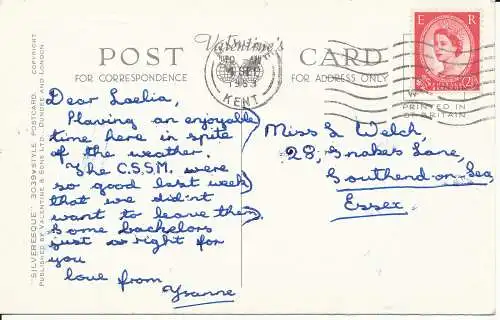 POST Valentine's CARD
FOR CORRESPONDENCE
FOR ADDRESS ONLY
E R
2½D
1963
KENT
PRINTED IN
GT. BRITAIN
"SILVERESQUE" STYLE POSTCARD. COPYRIGHT.
PUBLISHED BY VALENTINE & SONS LTD., DUNDEE AND LONDON.
Dear Laelia,
Having an enjoyable
time here in spite
of the weather.
The C.S.S.M. were
so good last week
that we did'nt
want to leave them
Some bachelors
just as right for
you
love from
Yvanne
Miss L Welch,
28, Snakes Lane,
Southend-on-Sea,
Essex.